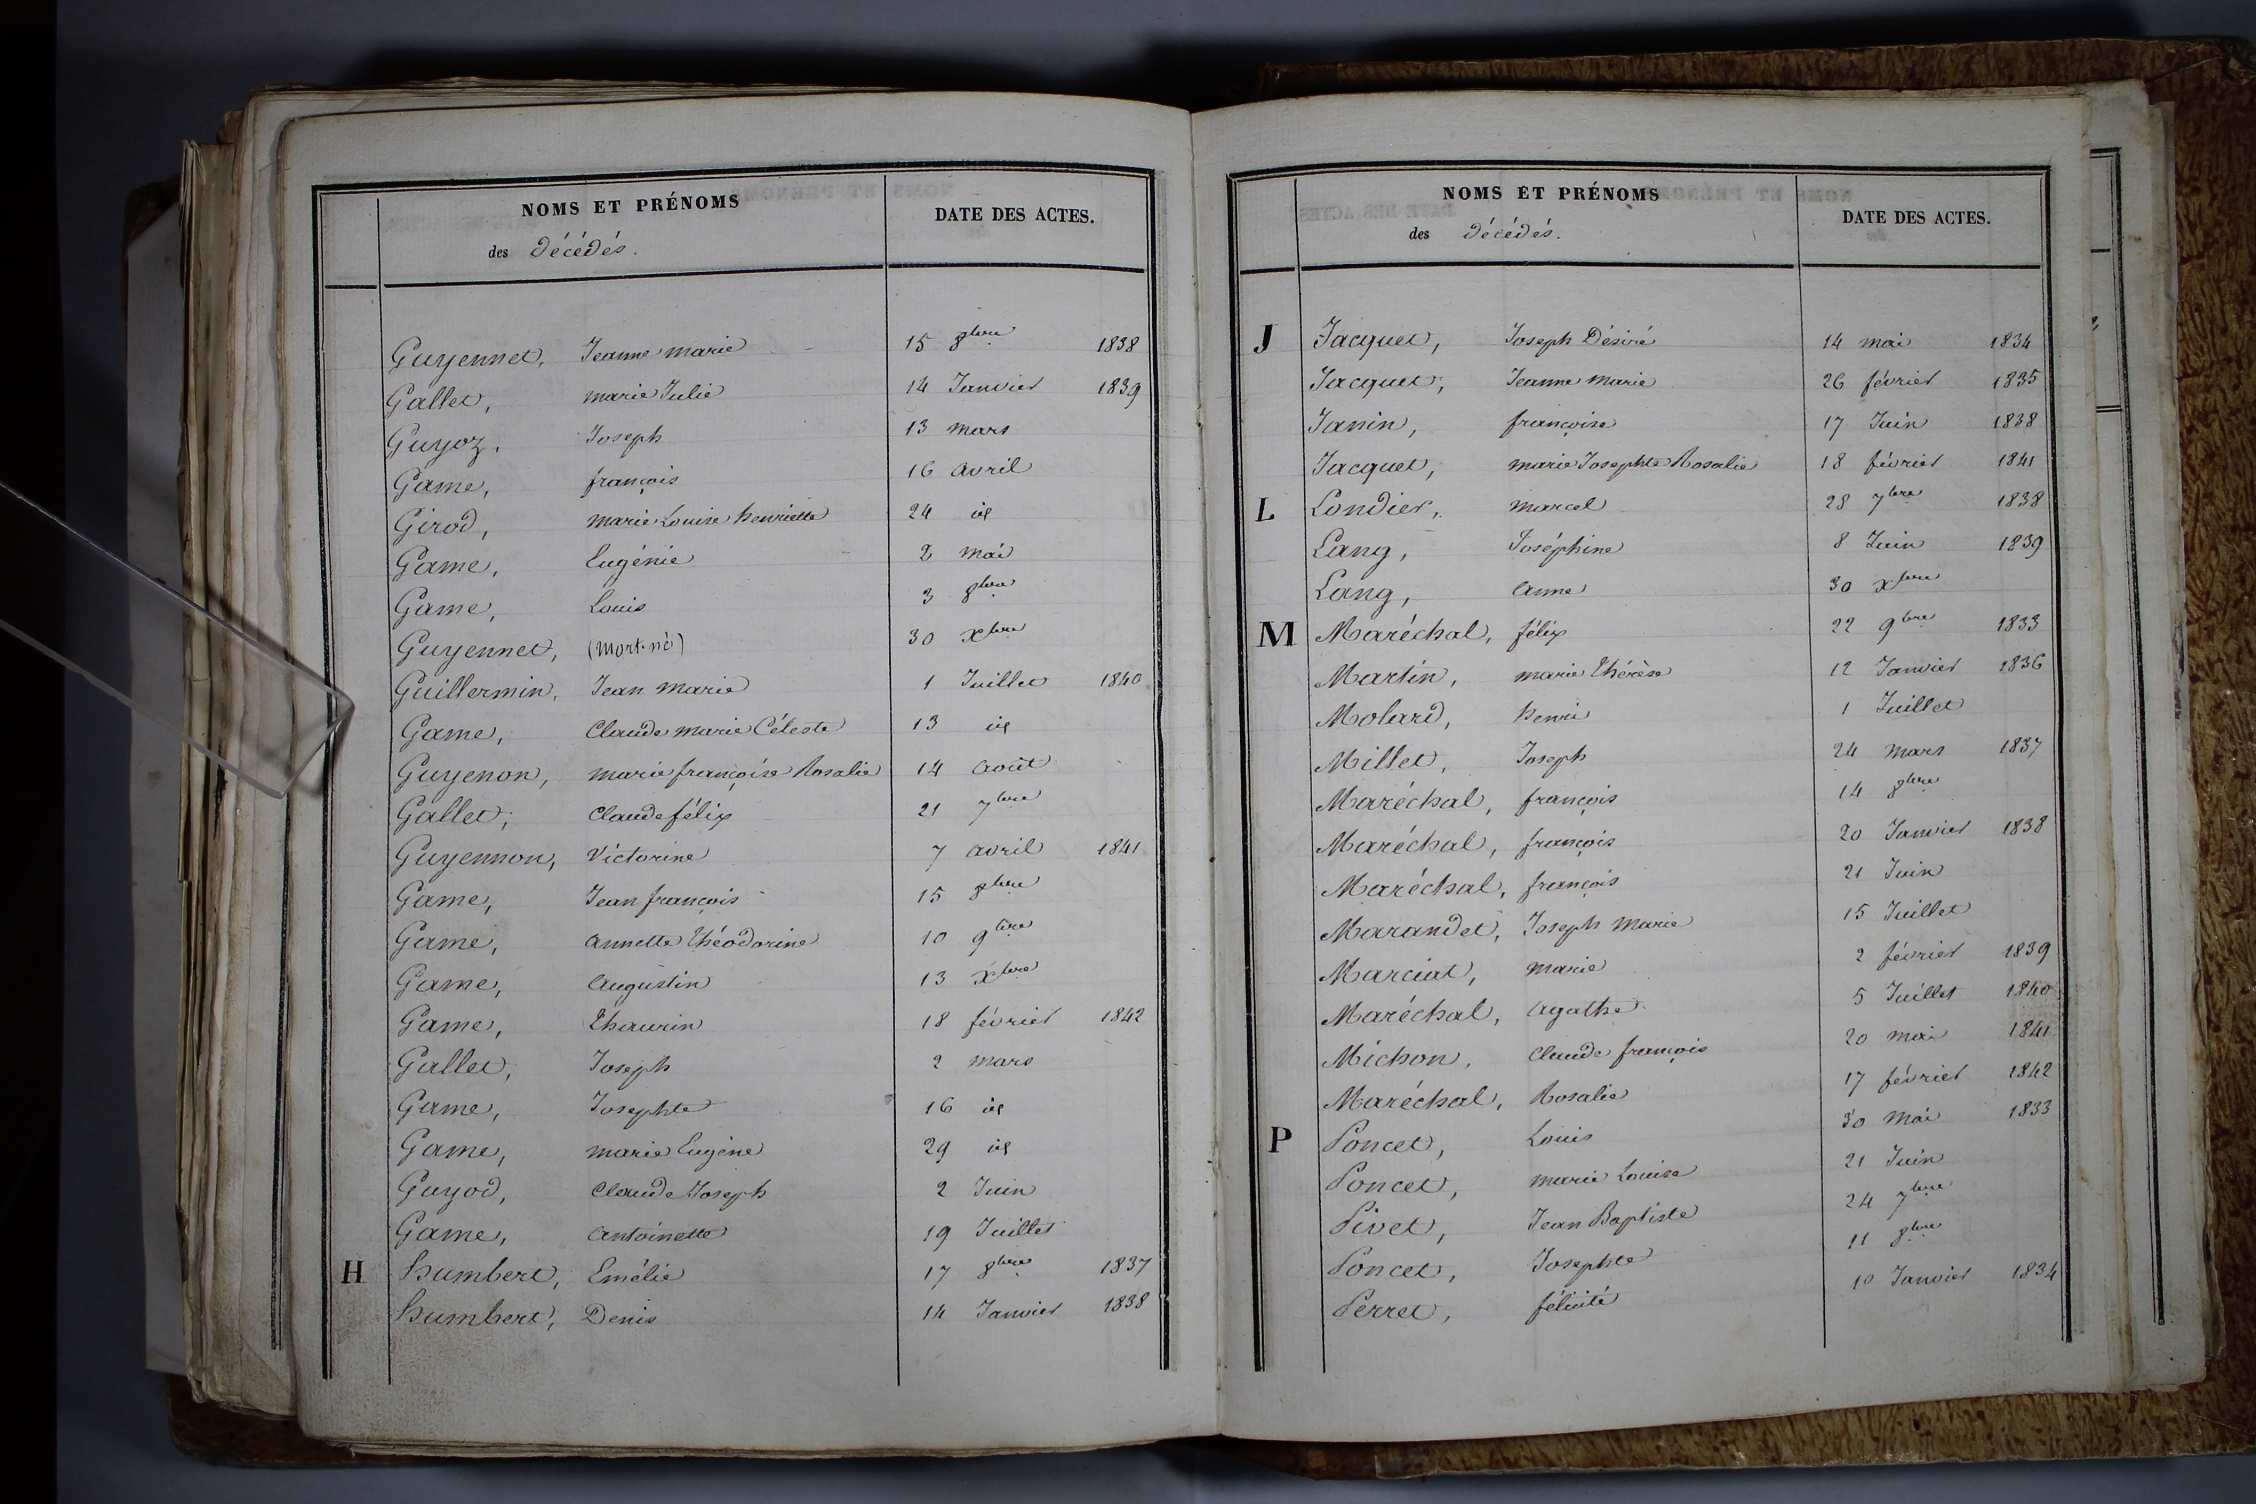 NOMS ET PRÉNOMS
DATE DES ACTES.
des décédés.
Guyennet, Jeanne marie 15 8bre 1838
Gallet, marie Julie 14 Janvier 1839
Guyoz, Joseph 13 mars
Game, françois 16 avril
Girod, marie Louise henriette 24 id
Game, Eugénie 2 mai
Game, Louis 3 8bre
Guyennet, (mort-né) 30 Xbre
Guillermin, Jean marie 1 Juillet 1840
Game, Claude marie Céleste 13 id
Guyenon, marie françoise Rosalie 14 août
Gallet, Claude félix 21 7bre
Guyennon, Victorine 7 avril 1841
Game, Jean françois 15 8bre
Game, annette théodorine 10 9bre
Game, augustin 13 Xbre
Game, Thaurin 18 février 1842
Gallet, Joseph 2 mars
Game, Josephte 16 id
Game, marie Eugène 29 id
Guyod, Claude Joseph 2 Juin
Game, antoinette 19 Juillet
H humbert, Emélie 17 8bre 1837
humbert, Denis 14 Janvier 1838
NOMS ET PRÉNOMS
DATE DES ACTES.
des décédés.
J Jacquet, Joseph Désiré 14 mai 1834
Jacquet, Jeanne marie 26 février 1835
Janin, françoise 17 Juin 1838
Jacquet, marie Josephte Rosalie 18 février 1841
L Londier, marcel 28 7bre 1838
Lang, Joséphine 8 Juin 1839
Lang, anne 30 Xbre
M Maréchal, félix 22 9bre 1833
Martin, marie thérèse 12 Janvier 1836
Molard, henri 1 Juillet
Millet, Joseph 24 mars 1837
Maréchal, françois 14 8bre
Maréchal, françois 20 Janvier 1838
Maréchal, françois 21 Juin
Marandet, Joseph marie 15 Juillet
Marciat, marie 2 février 1839
Maréchal, agathe 5 Juillet 1840
Michon, Claude françois 20 mai 1841
Maréchal, Rosalie 17 février 1842
P Poncet, Louis 30 mai 1833
Poncet, marie Louise 21 Juin
Pivet, Jean Baptiste 24 7bre
Poncet, Josephte 11 8bre
Perret, félicité 10 Janvier 1834